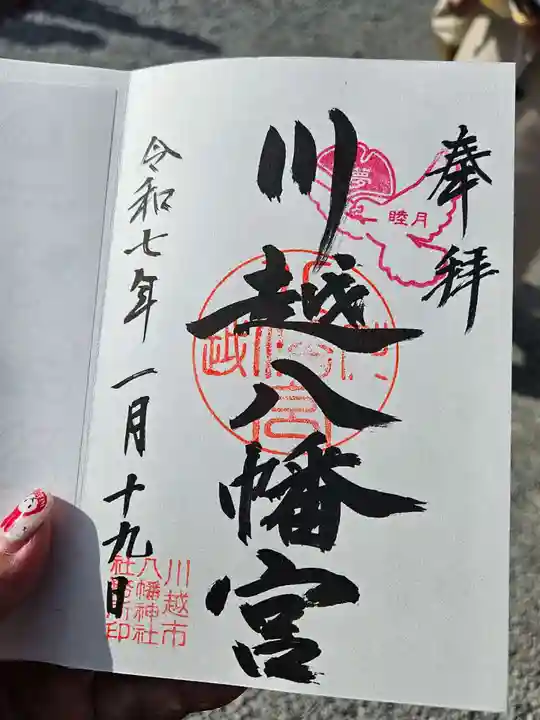 奉拝
夢
睦月
川越八幡宮
令和七年一月十九日
川越市
八幡神社
社務所印